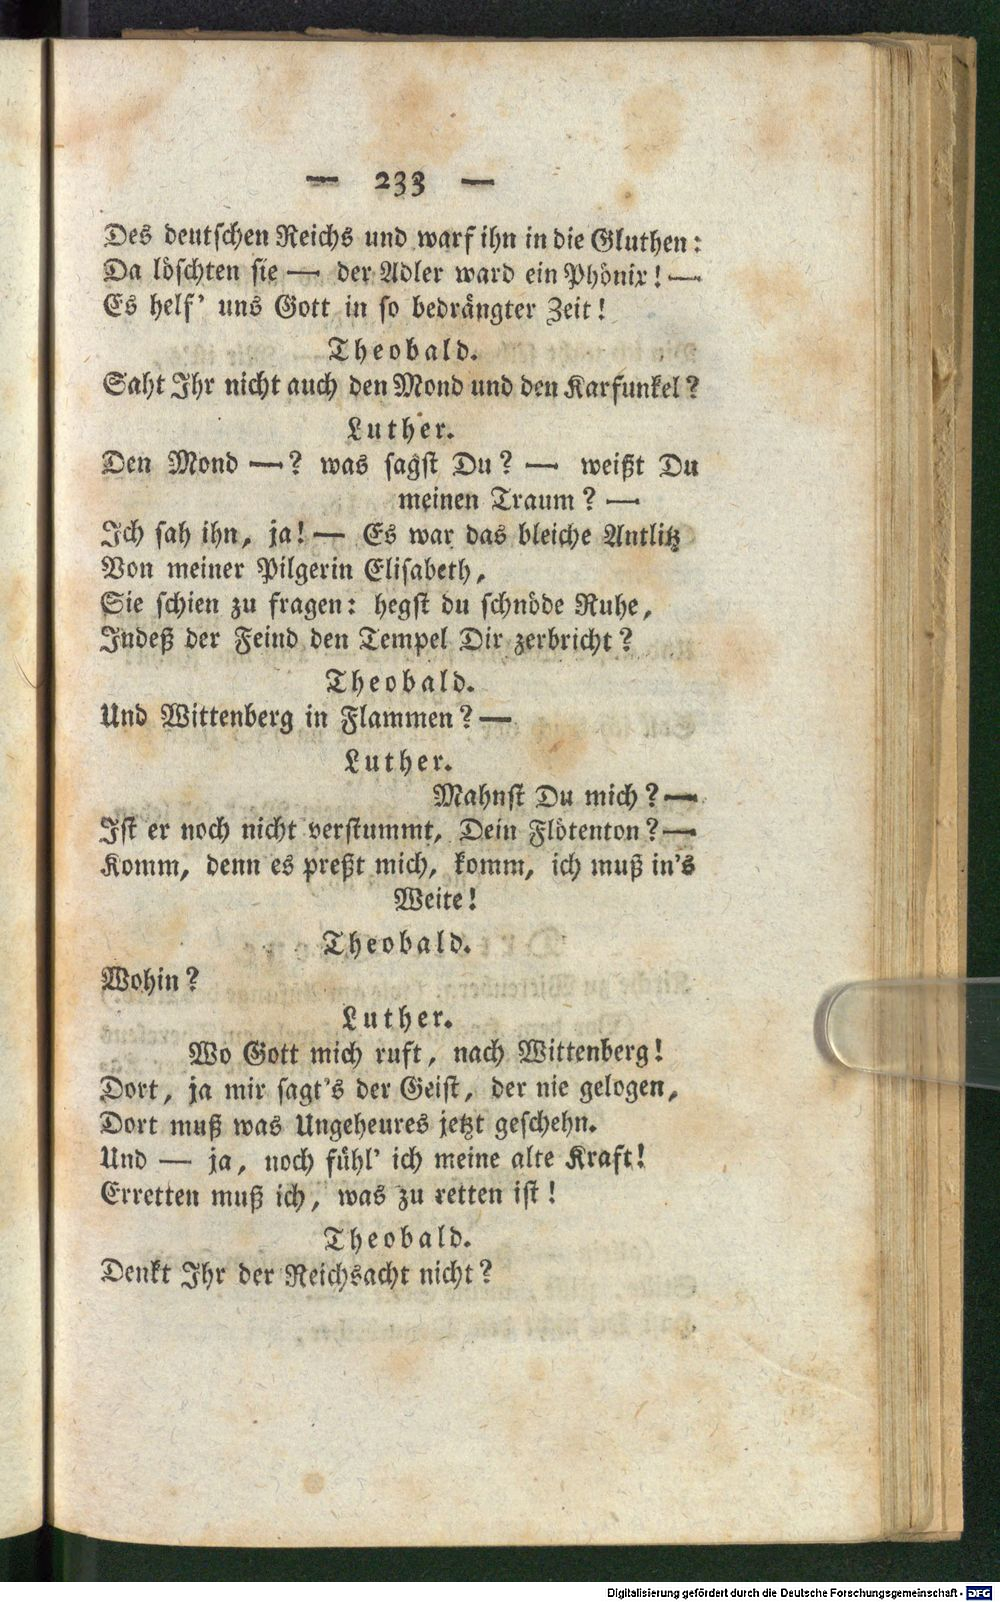 — 233 —
Des deutschen Reichs und warf ihn in die Gluthen:
Da löschten sie — der Adler ward ein Phönix! —
Es helf' uns Gott in so bedrängter Zeit!
Theobald.
Saht Ihr nicht auch den Mond und den Karfunkel?
Luther.
Den Mond —? was sagst Du? — weißt Du
meinen Traum? —
Ich sah ihn, ja! — Es war das bleiche Antlitz
Von meiner Pilgerin Elisabeth,
Sie schien zu fragen: hegst du schnöde Ruhe,
Indeß der Feind den Tempel Dir zerbricht?
Theobald.
Und Wittenberg in Flammen? —
Luther.
Mahnst Du mich? —
Ist er noch nicht verstummt, Dein Flötenton? —
Komm, denn es preßt mich, komm, ich muß in's
Weite!
Theobald.
Wohin?
Luther.
Wo Gott mich ruft, nach Wittenberg!
Dort, ja mir sagt's der Geist, der nie gelogen,
Dort muß was Ungeheures jetzt geschehn.
Und — ja, noch fühl' ich meine alte Kraft!
Erretten muß ich, was zu retten ist!
Theobald.
Denkt Ihr der Reichsacht nicht?
Digitalisierung gefördert durch die Deutsche Forschungsgemeinschaft - DFG